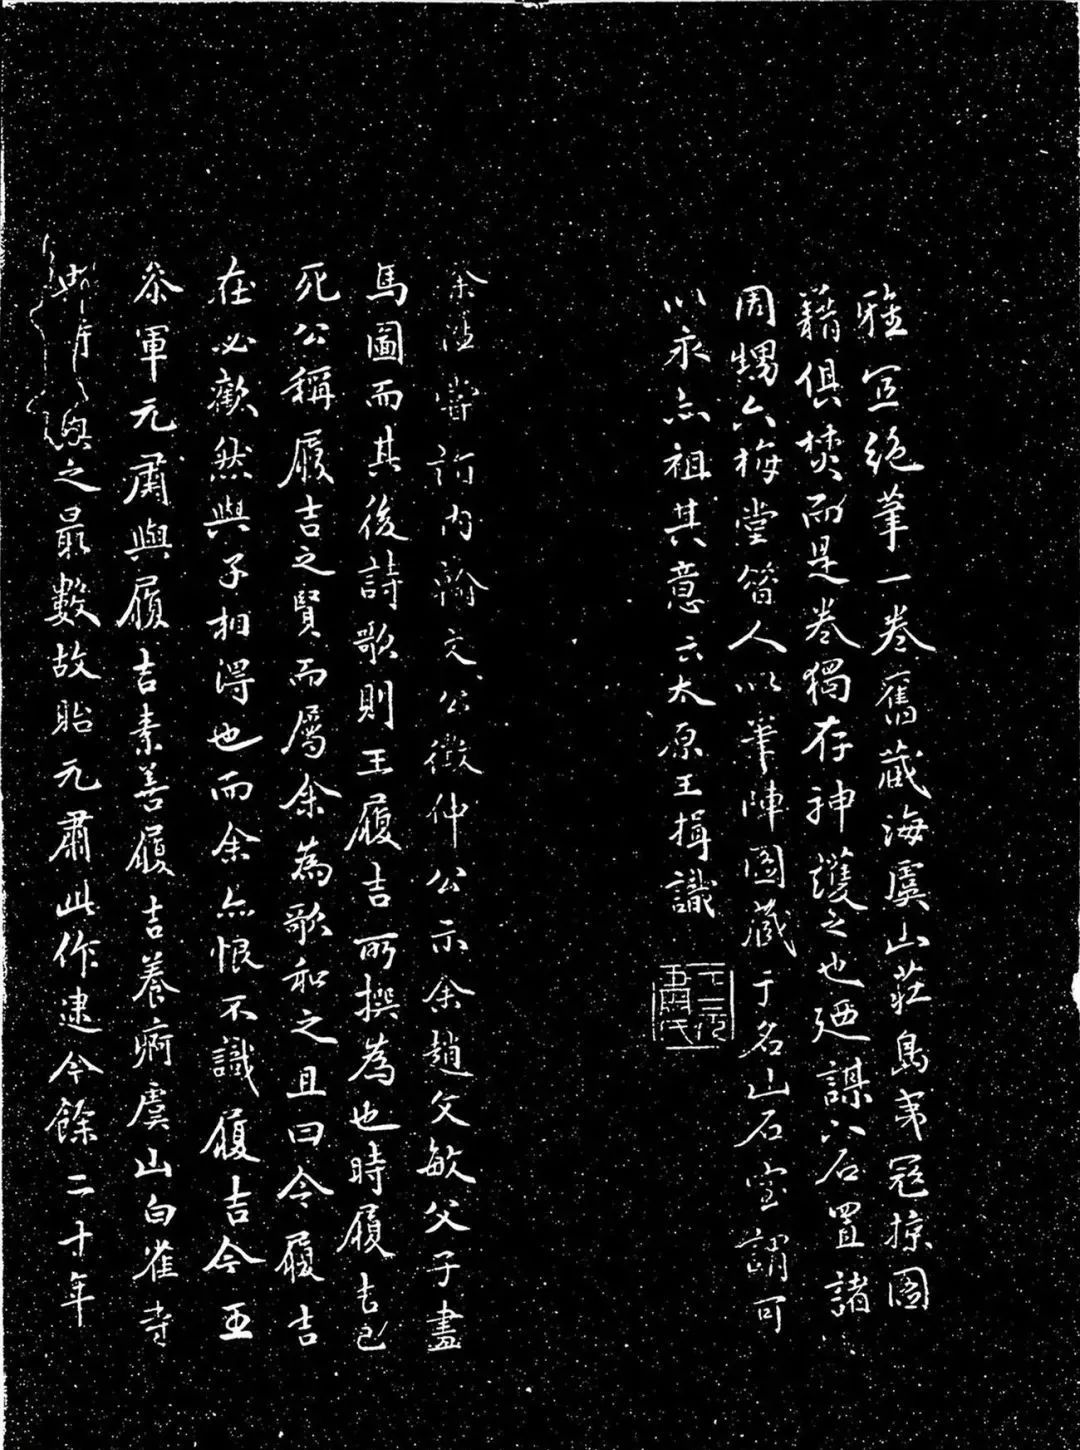 雅宜絕筆一卷舊藏海虞山莊島夷寇掠圖
藉俱焚而是卷獨存神護之也迺謀入石置諸
周甥六梅堂簪人以筆陣圖藏于名山石室謂可
以永六祖其意云太原王揖識
余嘗詣內翰文公徵仲公示余趙文敏父子畫
馬圖而其後詩歌則王履吉所撰為也時履吉已
死公稱履吉之賢而屬余為歌和之且曰令履吉
在必歡然與子相得也而余亦恨不識履吉今王
參軍元肅與履吉素善履吉養痾虞山白雀寺
之最數故貽元肅此作逮今餘二十年